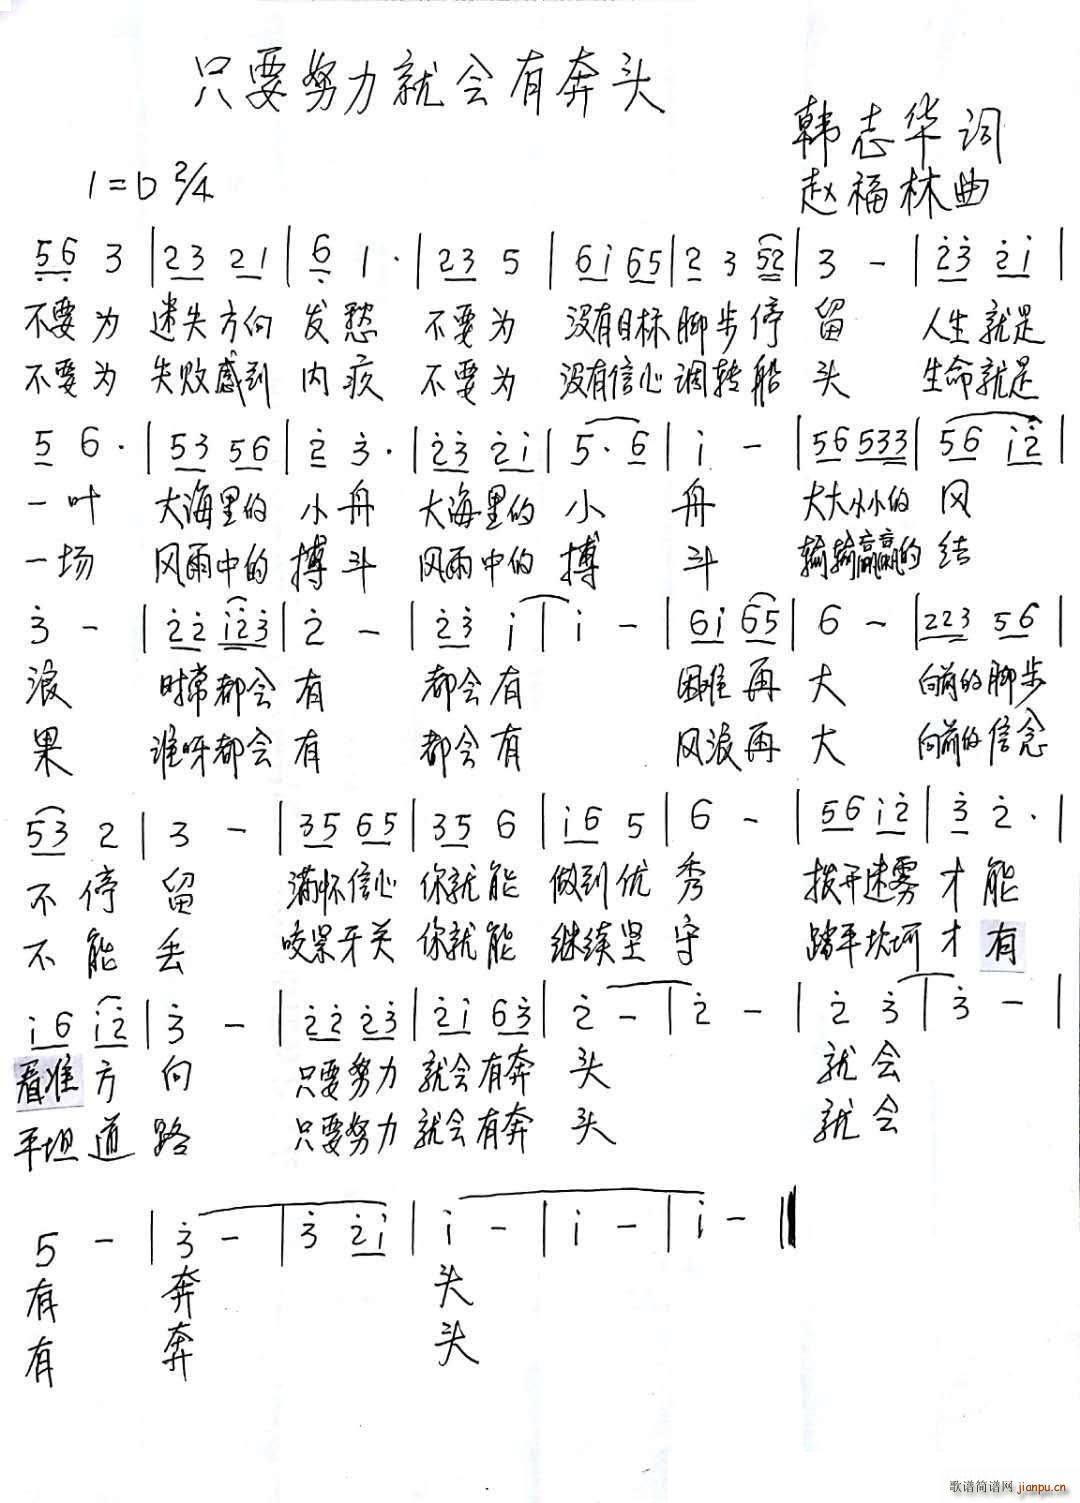 只要努力就会有奔头
韩志华词
1=D 2/4
赵福林曲
5̣6̣ 3 | 23 21 | 6̣ 1· | 23 5 | 6i 65 | 2 3 52 | 3 - | 2̇3̇ 2̇i |
不要为 迷失方向 发愁 不要为 没有目标 脚步停 留 人生就是
不要为 失败感到 内疚 不要为 没有信心 调转船 头 生命就是
5 6· | 53 56 | 2̇ 3̇· | 2̇3̇ 2̇i | 5· 6 | i - | 56 533 | 56 i2̇ |
一叶 大海里的 小舟 大海里的 小 舟 大大小小的 风
一场 风雨中的 搏斗 风雨中的 搏 斗 输输赢赢的 结
3̇ - | 2̇2̇ i2̇3̇ | 2̇ - | 2̇3̇ i | i - | 6i 65 | 6 - | 223 56 |
浪 时常都会 有 都会有 困难再 大 向前的脚步
果 谁呀都会 有 都会有 风浪再 大 向前的信念
53 2 | 3 - | 35 65 | 35 6 | i6 5 | 6 - | 56 i2̇ | 3̇ 2̇· |
不停 留 满怀信心 你就能 做到优 秀 拨开迷雾 才能
不能 丢 咬紧牙关 你就能 继续坚 守 踏平坎坷 才有
i6 i2̇ | 3̇ - | 2̇2̇ 2̇3̇ | 2̇i 63̇ | 2̇ - | 2̇ - | 2̇ 3̇ | 3̇ - |
看准方 向 只要努力 就会有奔 头 就会
平坦道 路 只要努力 就会有奔 头 就会
5 - | 3̇ - | 3̇ 2̇i | i - | i - | i - ‖
有 奔 头
有 奔 头
歌谱简谱网 jianpu.cn